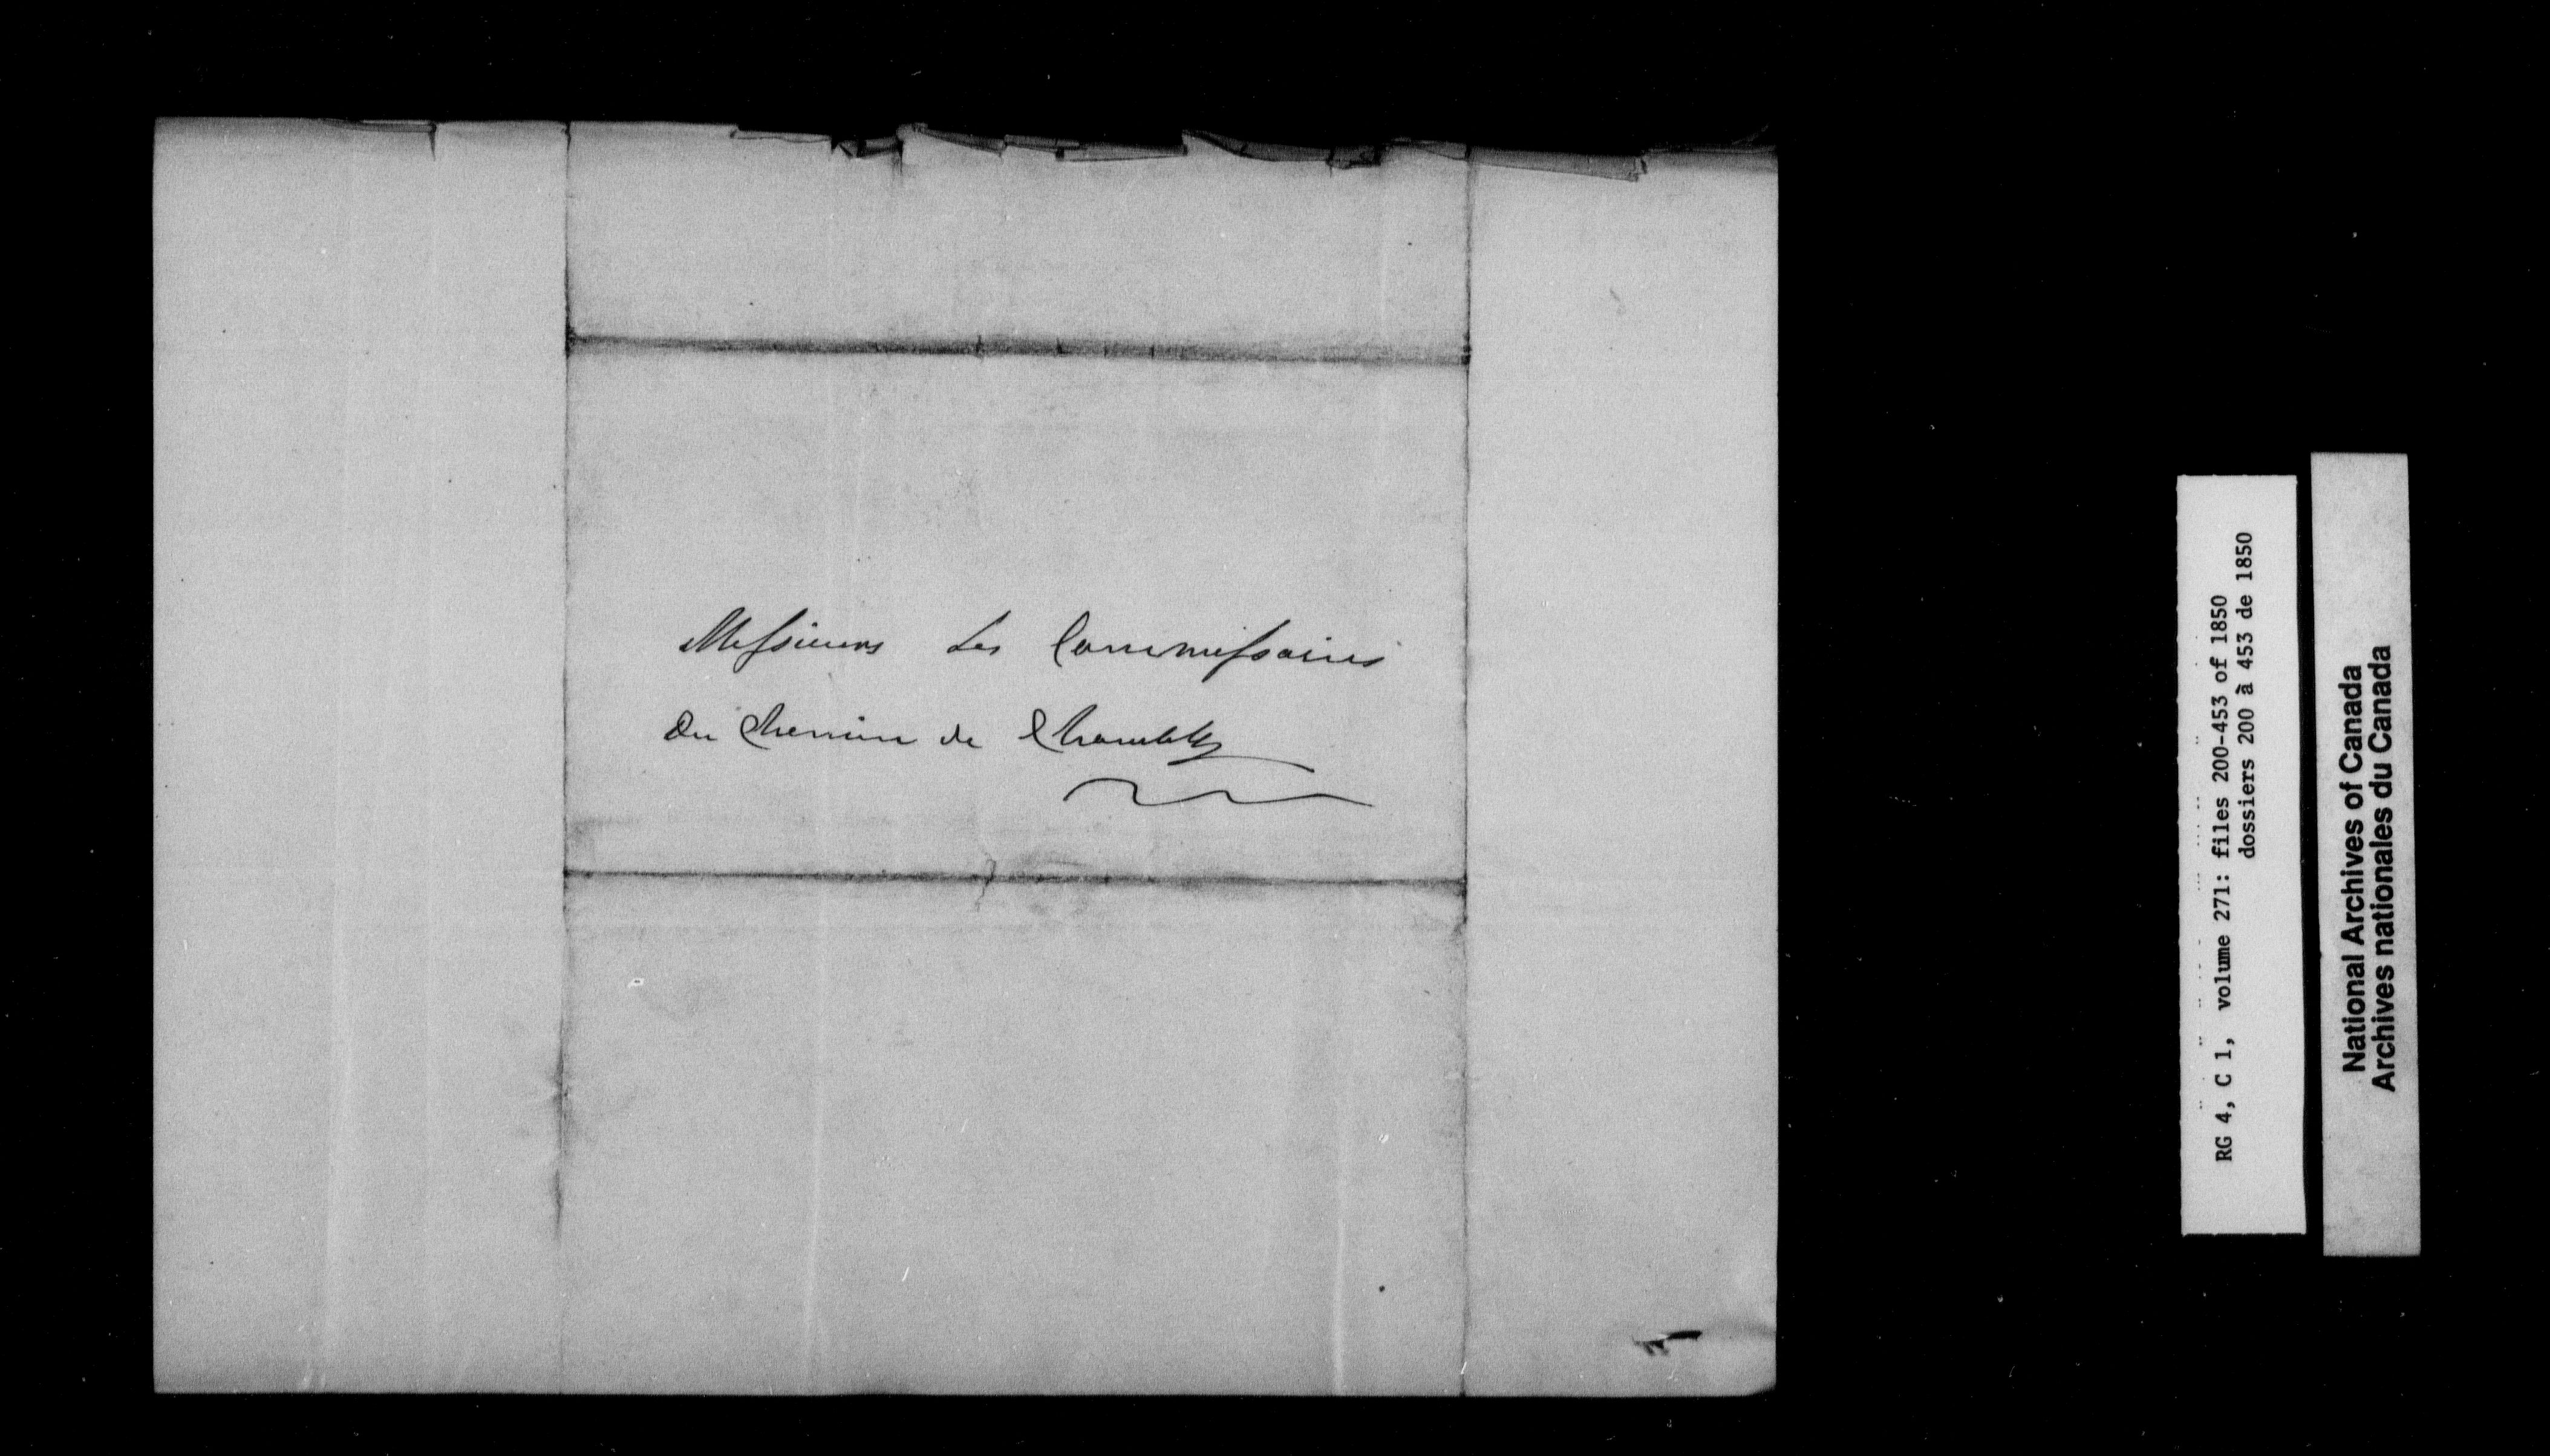 Messieurs Les Commissaires
Du Chemin de Chambly
RG 4, C 1, volume 271: files 200-453 of 1850
dossiers 200 à 453 de 1850
National Archives of Canada
Archives nationales du Canada